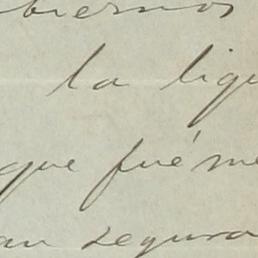 biernos
la liqu
que fué me
an segura